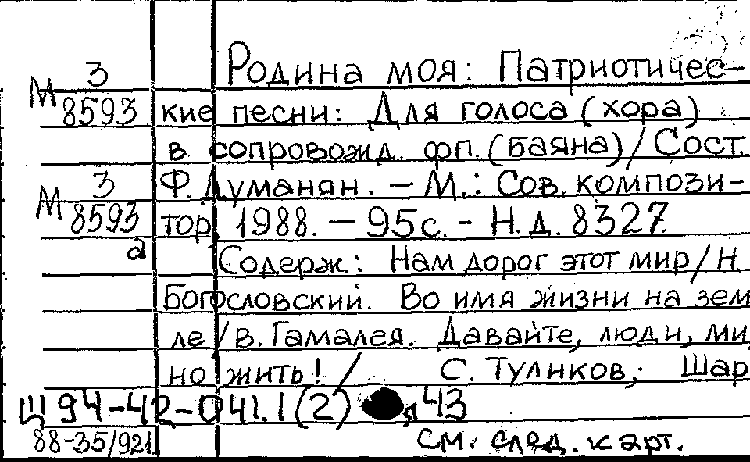 Родина моя: Патриотичес-
М 3
8593
кие песни: Для голоса (хора)
в сопровожд. фп. (баяна) / Сост.
М 3
8593
а
Ф. Луманян. – М.: Сов. компози-
тор, 1988. – 95 с. - Н.д. 8327.
Содерж: Нам дорог этот мир / Н.
Богословский. Во имя жизни на зем
ле / В. Гамалея. Давайте, люди, ми
но жить! / С. Туликов; Шар
Щ 94-42-041.1(2) 43
88-35/921
См. след. карт.